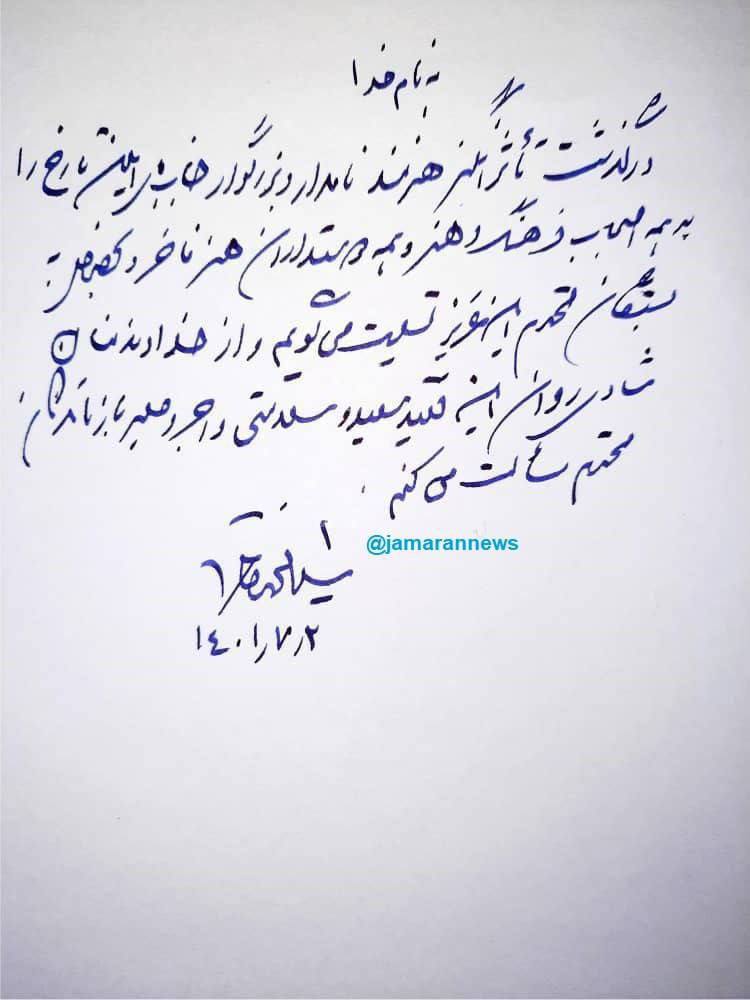 به نام خدا
درگذشت تأثرانگیز هنرمند نامدار و بزرگوار جناب آقای امین تارخ را
به همه اصحاب فرهنگ و هنر و همه دوستداران هنر فاخر و بخصوص به
بستگان محترم این عزیز تسلیت می گویم و از خداوند منان
شادی روان این فقید سعید و سلامتی و اجر و صبر بازماندگان
محترم مسألت می کنم.
@jamarannews
سید محمد خاتمی
۱۴۰۱٫۷٫۲